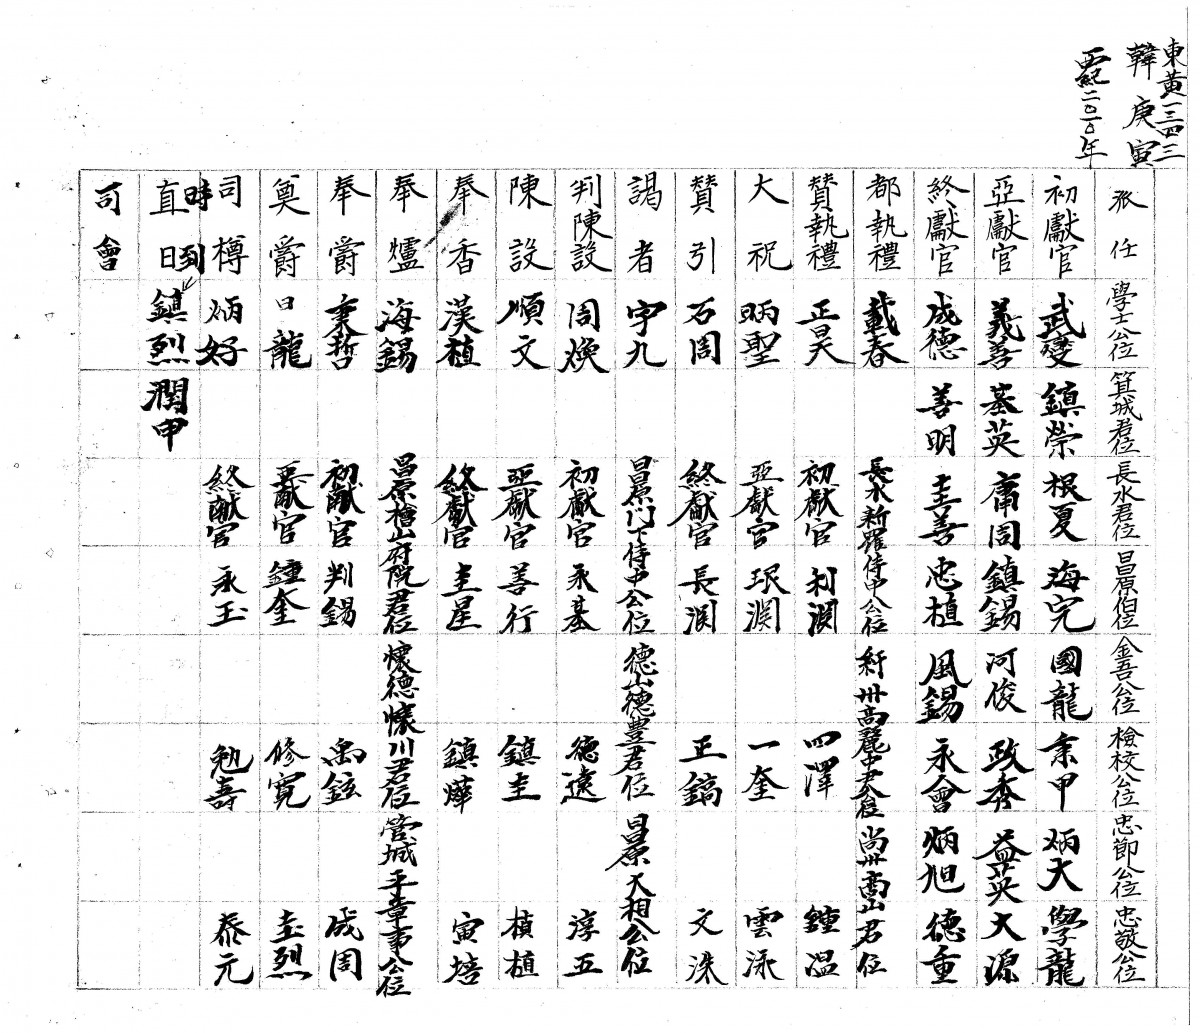 東黃一三四三
韓庚寅
西紀二〇一〇年
派任
學士公位
箕城君位
長水君位
昌原伯位
金吾公位
檢校公位
忠節公位
忠敬公位
初獻官
武燮
鎮榮
根夏
海完
國龍
秉甲
炳大
學龍
亞獻官
義善
基英
庸周
鎮錫
河俊
政秀
益英
大源
終獻官
成德
善明
圭善
忠植
風錫
永會
炳旭
德重
都執禮
載春
長水新羅侍中公位
尚州高山君位
贊執禮
正昊
初獻官
利淵
四澤
鍾温
大祝
昞聖
亞獻官
珉淵
一奎
雲泳
贊引
石周
終獻官
長淵
正鎬
文洙
謁者
宇九
昌原門下侍中公位
德山德豊君位
昌原大相公位
判陳設
周煥
初獻官
永基
德遠
淳五
陳設
順文
亞獻官
善行
鎮圭
楨植
奉香
漢植
終獻官
圭星
鎮燁
寅培
奉爐
海錫
昌原檜山府院君位
懷德懷川君位
管城平章事公位
奉爵
秉哲
初獻官
判錫
禹鉉
成周
奠爵
日龍
亞獻官
鍾奎
修寬
圭烈
司樽
炳好
終獻官
永玉
勉壽
泰元
時到
直日
鎮烈
潤甲
司會